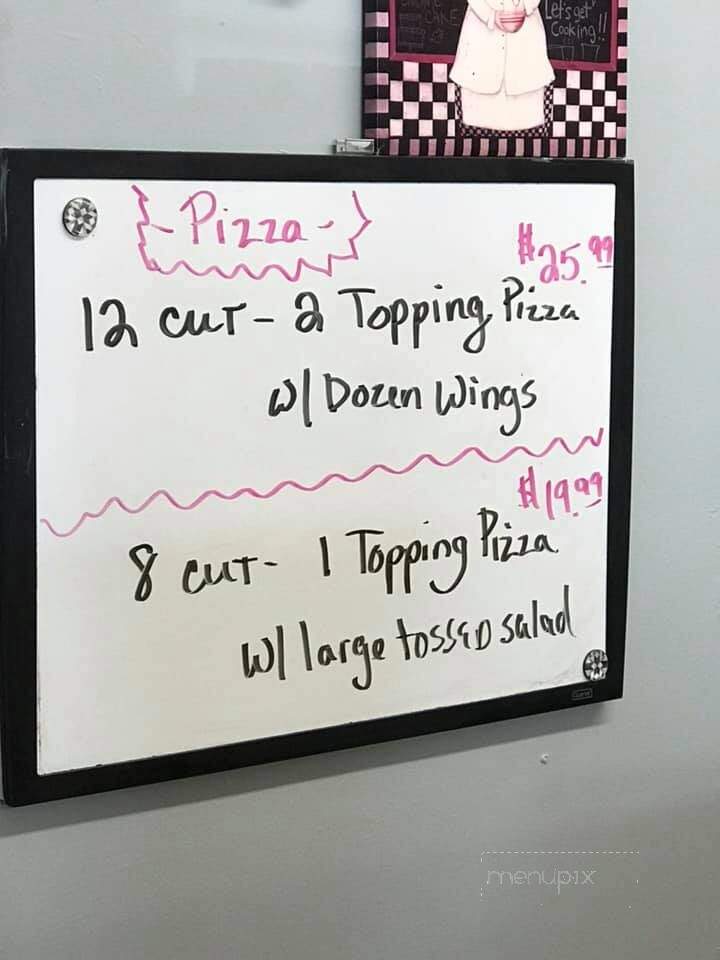 CAKE
Let's get
Cooking!!
- Pizza -
$25.99
12 cut - 2 Topping Pizza
w/ Dozen Wings
$19.99
8 cut - 1 Topping Pizza
w/ large tossed salad
menupix